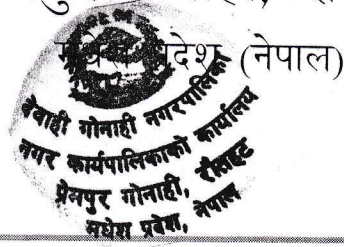 प्रदेश (नेपाल)
देवाही गोनाही नगरपालिका
नगर कार्यपालिकाको कार्यालय
प्रेमपुर गोनाही, रौतहट
मधेश प्रदेश, नेपाल